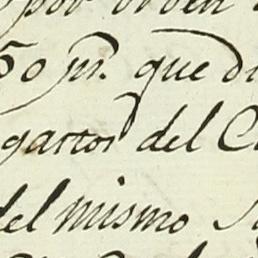 por orden
50 p.r que di
gastos del C
del mismo